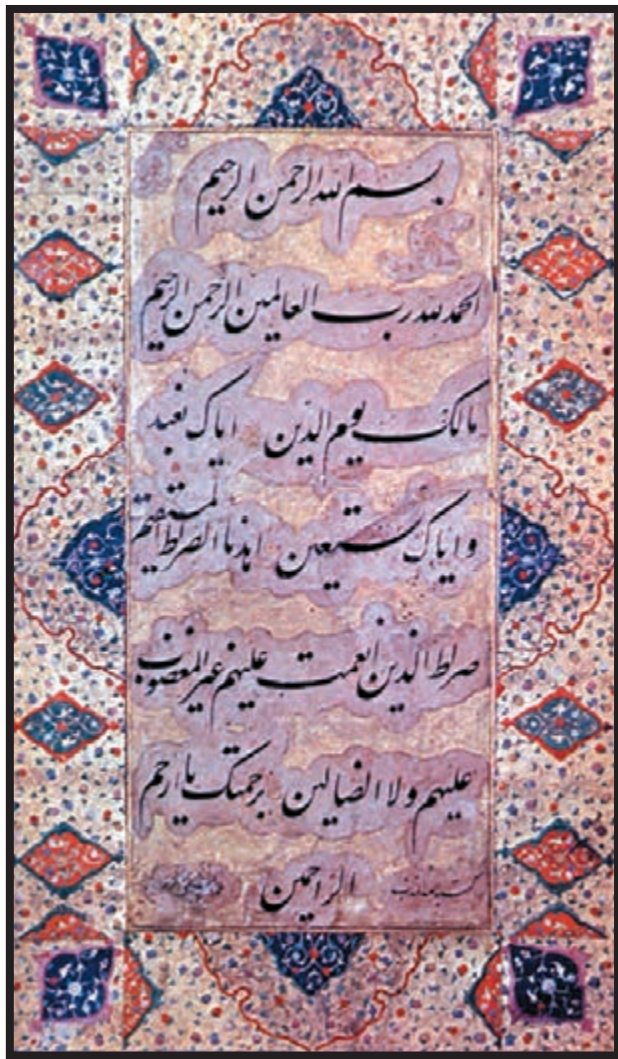 بسم الله الرحمن الرحيم
الحمد لله رب العالمين الرحمن الرحيم
مالك يوم الدين اياك نعبد
واياك نستعين اهدنا الصراط المستقيم
صراط الذين انعمت عليهم غير المغضوب
عليهم ولا الضالين برحمتك يا ارحم
الراحمين